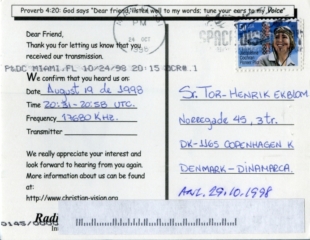 Proverb 4:20: God says "Dear friend, listen well to my words; tune your ears to my Voice"
Dear Friend,
Thank you for letting us know that you received our transmission.
P&DC MIAMI, FL 10-24-98 20:15
We confirm that you heard us on:
Date August 19 de 1998
Time 20:31-20:58 UTC.
Frequency 17680 KHz.
Transmitter
We really appreciate your interest and look forward to hearing from you again.
More information about us can be found at:
http://www.christian-vision.org
PM
24 OCT
1998
SPACE
Sr. TOR-HENRIK EKBLOM
Norregade 45, 3 tr.
DK-1165 COPENHAGEN K
DENMARK-DINAMARCA
ANK. 29.10.1998